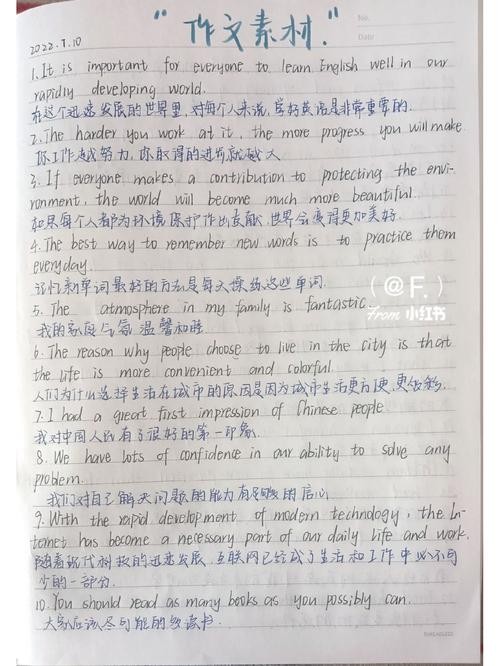 "作文素材."
No.
Date
2022.7.10
1. It is important for everyone to learn English well in our
rapidly developing world.
在这个迅速发展的世界里,对每个人来说,学好英语是非常重要的.
2. The harder you work at it, the more progress you will make.
你工作越努力,你取得的进步就越大
3. If everyone makes a contribution to protecting the envi-
ronment, the world will become much more beautiful.
如果每个人都为环境保护作出贡献,世界会变得更加美好.
4. The best way to remember new words is to practice them
everyday.
记忆新单词最好的方法是每天操练这些单词.
5. The atmosphere in my family is fantastic.
我的家庭气氛温馨和睦
(@F.)
from 小红书
6. The reason why people choose to live in the city is that
the life is more convenient and colorful.
人们为什么选择生活在城市的原因是因为城市生活更方便,更多彩.
7. I had a great first impression of Chinese people
我对中国人民有了很好的第一印象.
8. We have lots of confidence in our ability to solve any
problem.
我们对自己解决问题的能力有足够的信心
9. With the rapid development of modern technology, the In-
ternet has become a necessary part of our daily life and work.
随着现代科技的迅速发展,互联网已经成了生活和工作中必不可
少的一部分.
10. You should read as many books as you possibly can.
大家应该尽可能的多读书.